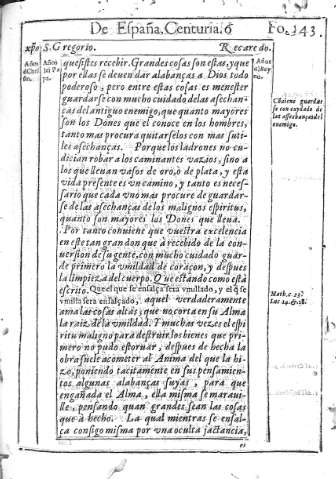 De España. Centuria. 6 Fo. 143.
xp̃o S. Gregorio. Recaredo.
quesistes recebir. Grandes cosas son estas, y que
por ellas se deuen dar alabanças a Dios todo
poderoso, pero entre estas cosas es menester
guardarse con mucho cuidado delas asechan-
ças del antiguo enemigo, que quanto mayores
son los Dones que el conoce en los hombres,
tanto mas procura quitarselos con mas suti-
les asechanças. Porque los ladrones no cu-
dician robar a los caminantes vazios, sino a
los que lleuan vasos de oro, o de plata, y esta
vida presente es vn camino, y tanto es neces-
sario que cada vno mas procure de guardar-
se de las asechanças de los malignos espiritus,
quanto son mayores los Dones que lleua.
Por tanto conuiene que vuestra excelencia
en este tan gran don que à recebido de la con-
uersion de su gente, con mucho cuidado guar-
de primero la vmildad de coraçon, y despues
la limpieza del cuerpo. Que estando como està
escrito. Que el que se ensalça sera vmillado, y el q̃ se
vmilla sera ensalçado, aquel verdaderamente
ama las cosas altas, que no corta en su Alma
la raiz de la vmildad. Y muchas vezes el espi
ritu maligno para destruir los bienes que pri
mero no pudo estoruar, despues de hecha la
obra suele acometer al Anima del que la hi-
zo, poniendo tacitamente en sus pensamien-
tos algunas alabanças suyas, para que
engañada el Alma, ella misma se maraui-
lle, pensando quan grandes sean las cosas
que à hecho. La qual mientras se ensal-
ça consigo misma por vna oculta jactancia,
Cõuiene guardar
se con cuydado de
las assechanças del
enemigo.
Math. c. 23.
Luc. 14. & 18.